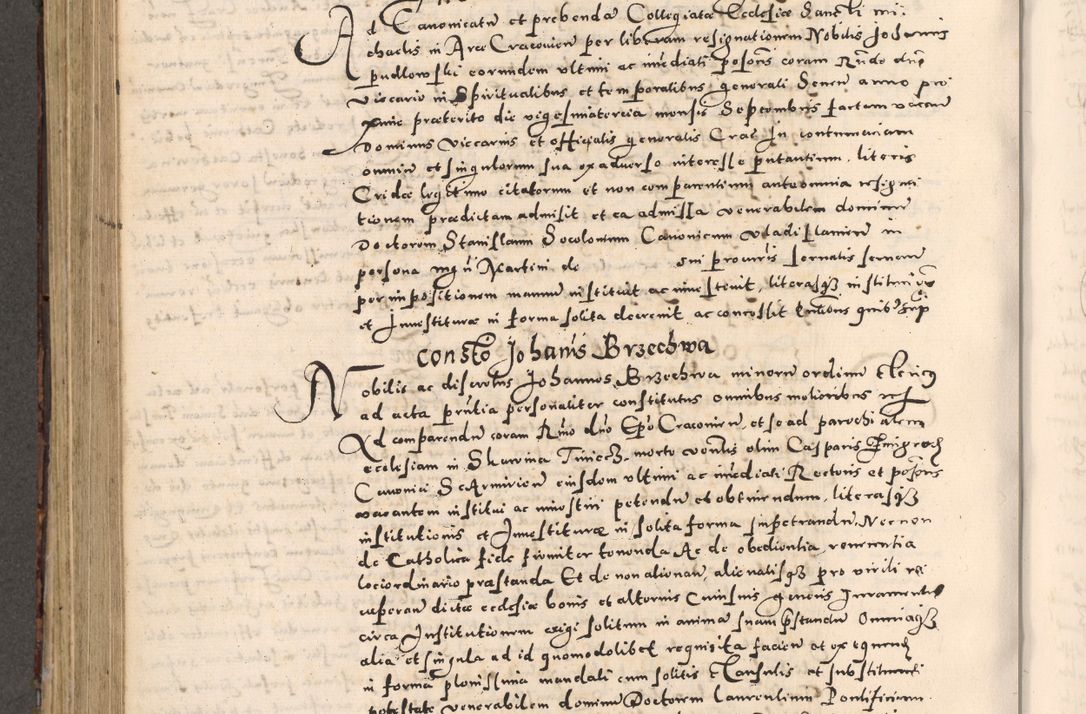 Ad Canonicatu et prebenda Collegiatæ Ecclesiæ Sancti Mi
chaelis in Arce Cracovien per liberam resignationem Nobilis Joannis
pudlowski eorundem ultimi ac imediati possoris coram Rndo dno
Viccario in Spiritualibus et temporalibus generali Senen anno pro
xime præterito die vigesimatercia mensis Septembris factam vacan
Dominus Viccarius et officialis generalis Crac In contumaciam
omniu et singulorum sua ex adverso interesse putantium literis
Cridæ legitime citatorum et non comparentium anteomnia resigna
tionem prædictam admisit et ea admissa venerabilem dominum
Doctorem Stanislaum Socolomum Canonicum Vladislavien in
persona mgri Martini de sui procuris
per impositionem manum instituit ac investivit, literasq3 institutionis
et Investituræ in forma solita decrevit ac concessit
Consto Johanis Brzechwa
Nobilis ac discretus Johannes Brzechwa minoru ordinu Clericus
ad acta prntia personaliter constitutus omnibus melioribus
Ad comparendu coram Rmo dno Epo Cracovien, et se ad parochialem
ecclesiam in Skawina Tiniecz, morte olim Casparis
Canonici Scarmirien eiusdem ultimi ac imediati Rectoris et possoris
vacantem institui ac investiri petendu et obtinendum, literasq3
institutionis et Investituræ in solita forma impetrandu Necnon
de Catholica fide firmiter tenenda Ac de obedientia, reverentia
lociordinario præstanda Et de non alienan, alienatisq3 pro virili re
cuperan dictæ ecclesiæ bonis et alterius Cuiusvis generis Iuramentu
circa Institutionem exigi solitum in anima suam prstandu Omniaq3
alia et singula ad id quomodolibet requisita facien et exequendu
in forma plenissima mandati cum solitis Clausulis et substituendi
potestate venerabilem dominu Doctorem Laurentium Pontificium